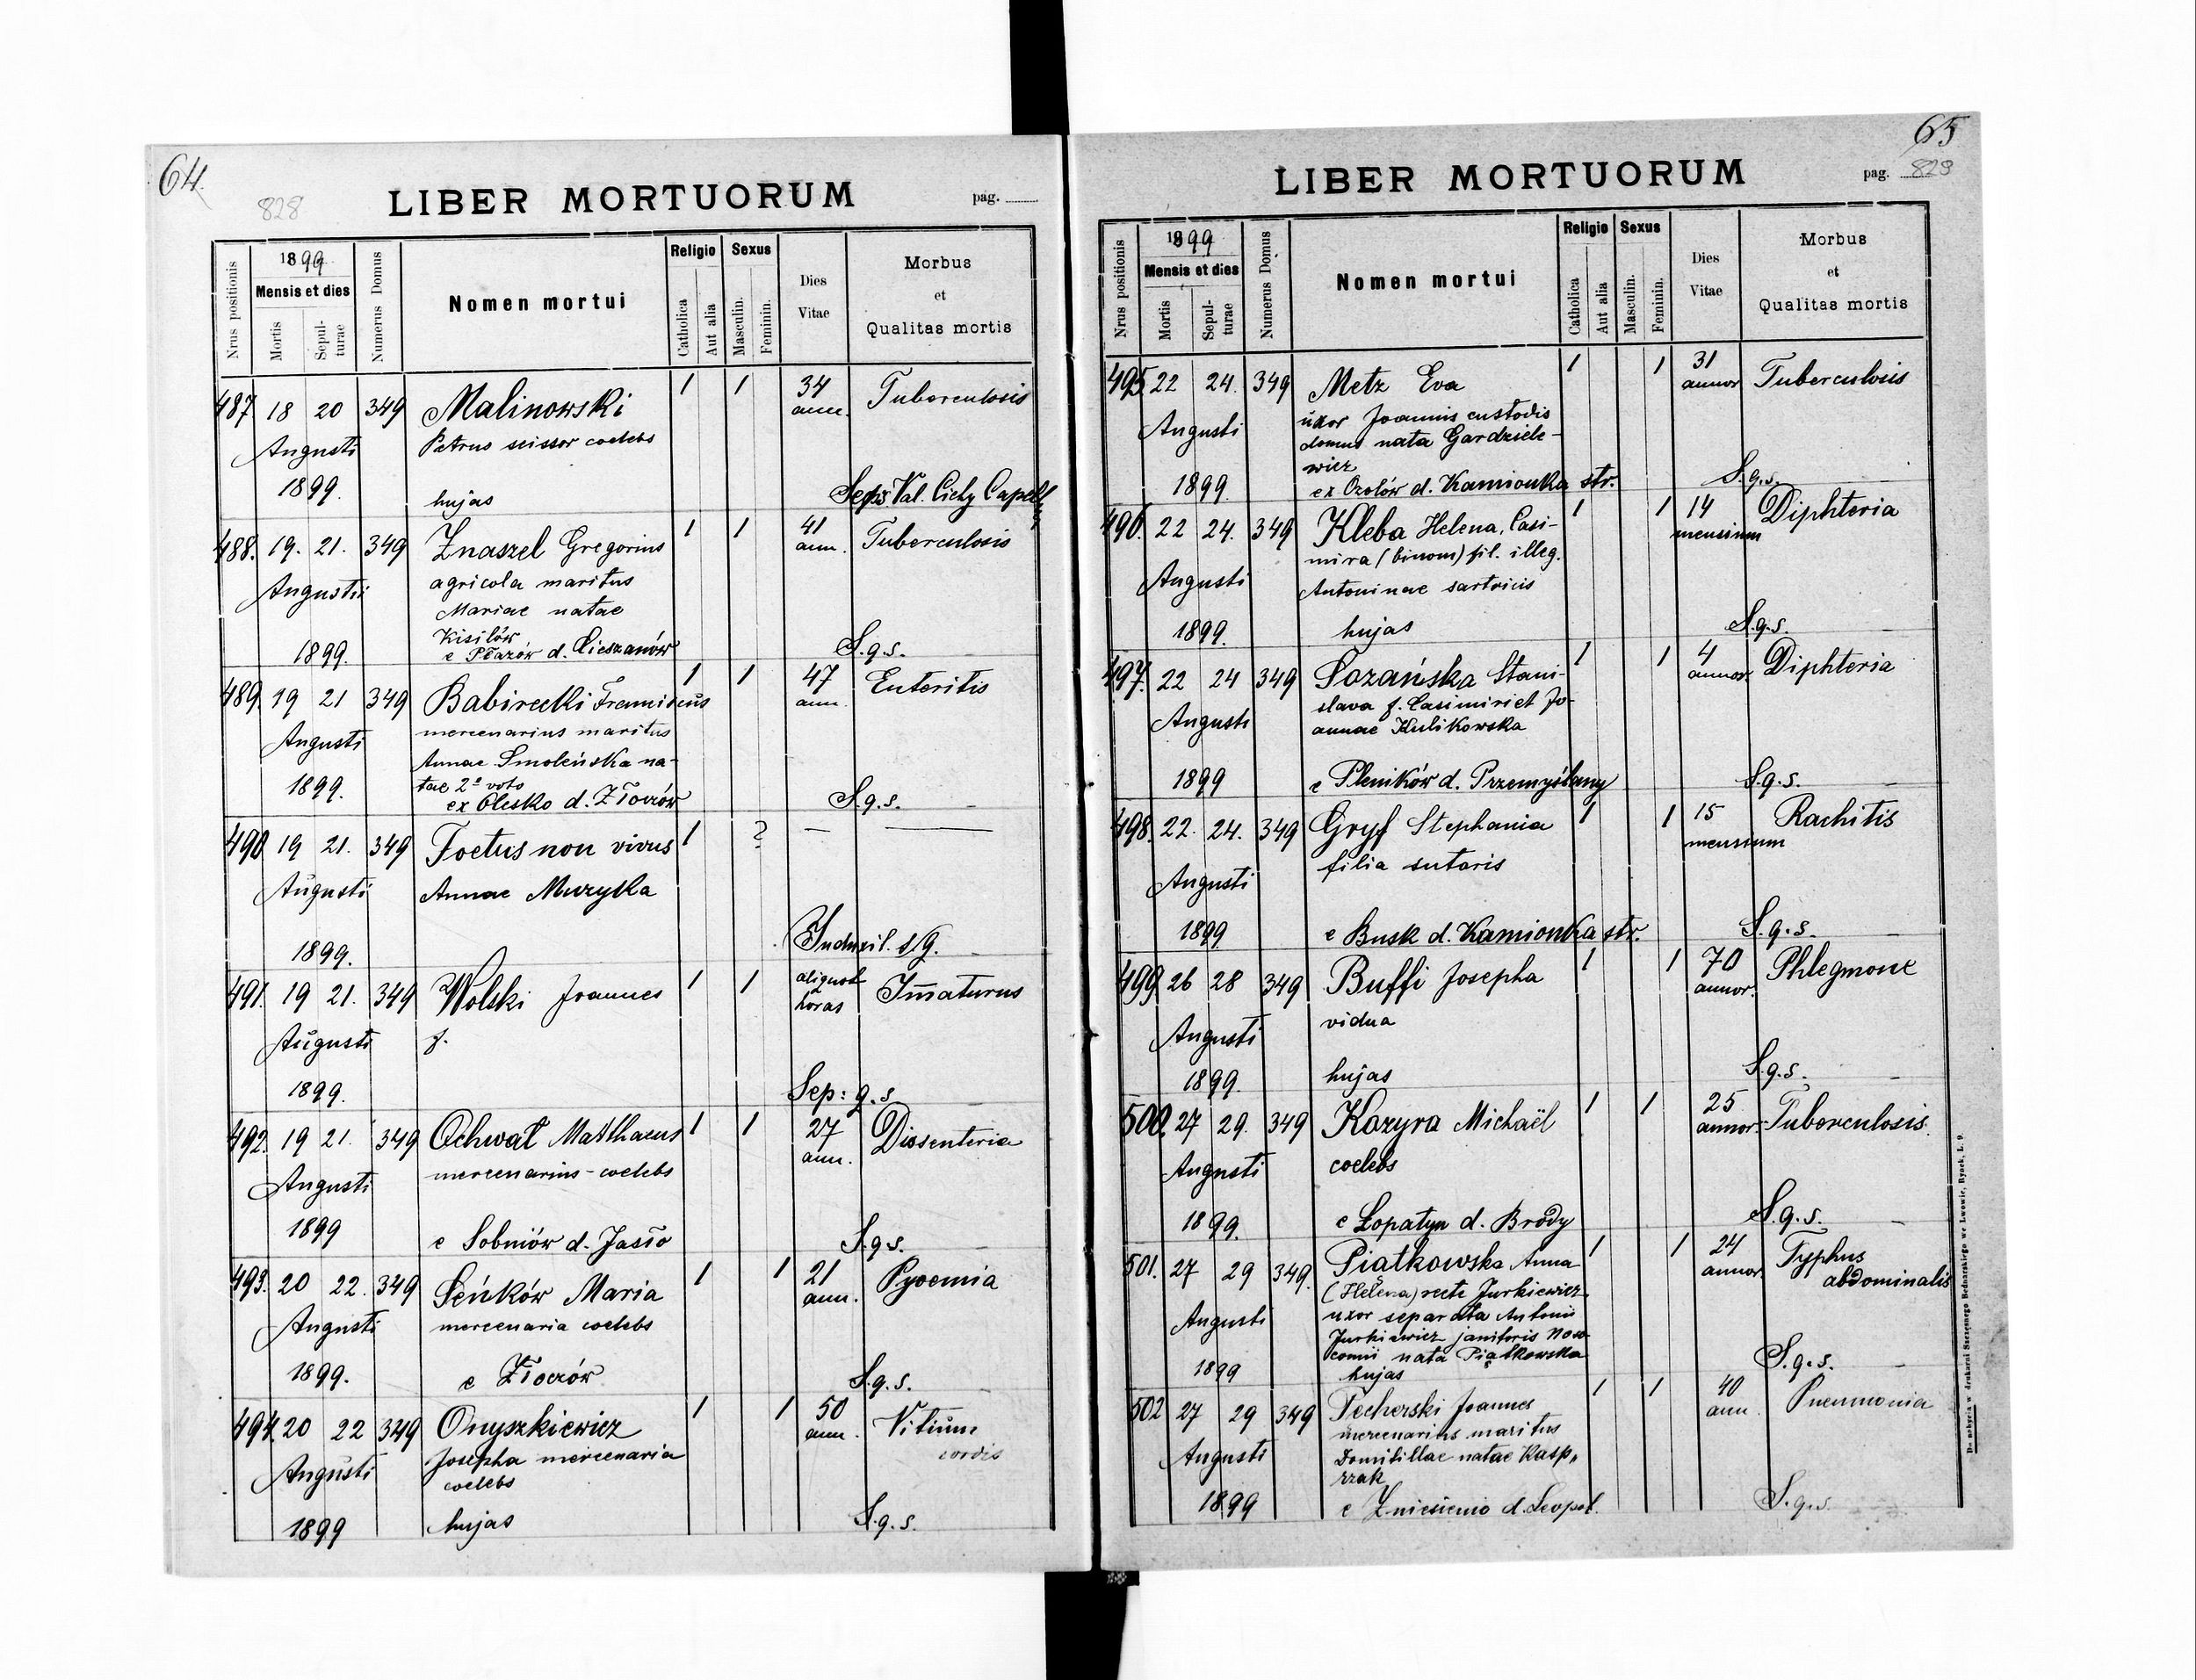 64.
828
LIBER MORTUORUM
pag.
Nrus positionis
1899
Mensis et dies
Mortis
Sepul-
turae
Numerus Domus
Nomen mortui
Religio
Catholica
Aut alia
Sexus
Masculin.
Feminin.
Dies
Vitae
Morbus
et
Qualitas mortis
487 18 20 349 Malinowski 1 1 34 Tuberculosis
ann.
Augusti Petrus scissor coelebs
1899. hujas Val. Cichy Capell
488. 19. 21. 349 Znaszel Gregorius 1 1 41 Tuberculosis
ann.
Augusti agricola maritus
Mariae natae
Kisilów
1899. e Płazów d. Cieszanów S.g.s.
489. 19 21 349 Babirecki 1 1 47 Enteritis
ann.
mercenarius maritus
Augusti
Annae Smoleńska na-
1899. tae 2º voto
ex Olesko d. Złoczów S.g.s.
490 19 21. 349 Foetus non vivus 1 ? — —
Augusti Annae Muzyka
1899.
491. 19 21. 349 Wolski Joannes 1 1 aliquot Im̄aturus
horas
Augusti f.
1899. Sep: g.s
492. 19 21. 349 Ochwat Matthaeus 1 1 27 Dissenteria
ann.
Augusti mercenarius - coelebs
1899 e Sobniów d. Jasło S.g.s.
493. 20 22. 349 Seńków Maria 1 1 21 Pyoemia
ann.
Augusti mercenaria coelebs
1899. e Złoczów S.g.s.
494. 20 22 349 Onyszkiewicz 1 1 50 Vitium
ann. cordis
Augusti Josepha mercenaria
coelebs
1899 hujas S.g.s.
65
pag. 829
LIBER MORTUORUM
Nrus positionis
1899
Mensis et dies
Mortis
Sepul-
turae
Numerus Domus
Nomen mortui
Religio
Catholica
Aut alia
Sexus
Masculin.
Feminin.
Dies
Vitae
Morbus
et
Qualitas mortis
495 22 24. 349 Metz Eva 1 1 31 Tuberculosis
annor
uxor Joannis custodis
Augusti domus nata Gardziele-
wicz
1899. ex Ozolów d. Kamionka str. S.g.s.
496. 22 24. 349 Kleba Helena, Casi- 1 1 14 Diphteria
mensium
mira (binom) fil. illeg.
Augusti Antoninae sartricis
1899. hujas S.g.s.
497. 22 24 349 Sozańska Stani- 1 1 4 Diphteria
annor.
slava f. Casimiri et Jo-
Augusti annae Kulikowska
1899 e Pleników d. Przemyślany S.g.s.
498. 22. 24. 349 Gryf Stephania 1 1 15 Rachitis
mensium
filia sutoris
Augusti
1899 e Busk d. Kamionka str. S.g.s.
499. 26 28 349 Buffi Josepha 1 1 70 Phlegmone
annor.
Augusti vidua
1899. hujas S.g.s.
500. 27 29. 349 Kozyra Michaël 1 1 25 Tuberculosis.
annor.
Augusti coelebs
1899. e Łopatyn d. Brody S.g.s.
501. 27 29 349. Piątkowska Anna 1 1 24 Typhus
annor. abdominalis
(Helena) recte Jurkiewicz
Augusti uxor separata Antonii
Jurkiewicz janitoris noso-
comii nata Piątkowska
1899 hujas S.g.s.
502 27 29 349 Pecherski Joannes 1 1 40 Pneumonia
ann.
mercenarius maritus
Augusti Domitillae natae Kasp„
rzak
1899 e Zniesienio d. Leopol. S.g.s.
Do nabycia w drukarni Szczęsnego Bednarskiego we Lwowie, Rynek, L. 9.